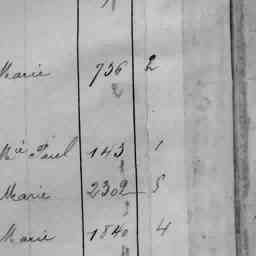 Marie 736 2
Mie Paul 143 1
Marie 2302 5
Marie 1840 4